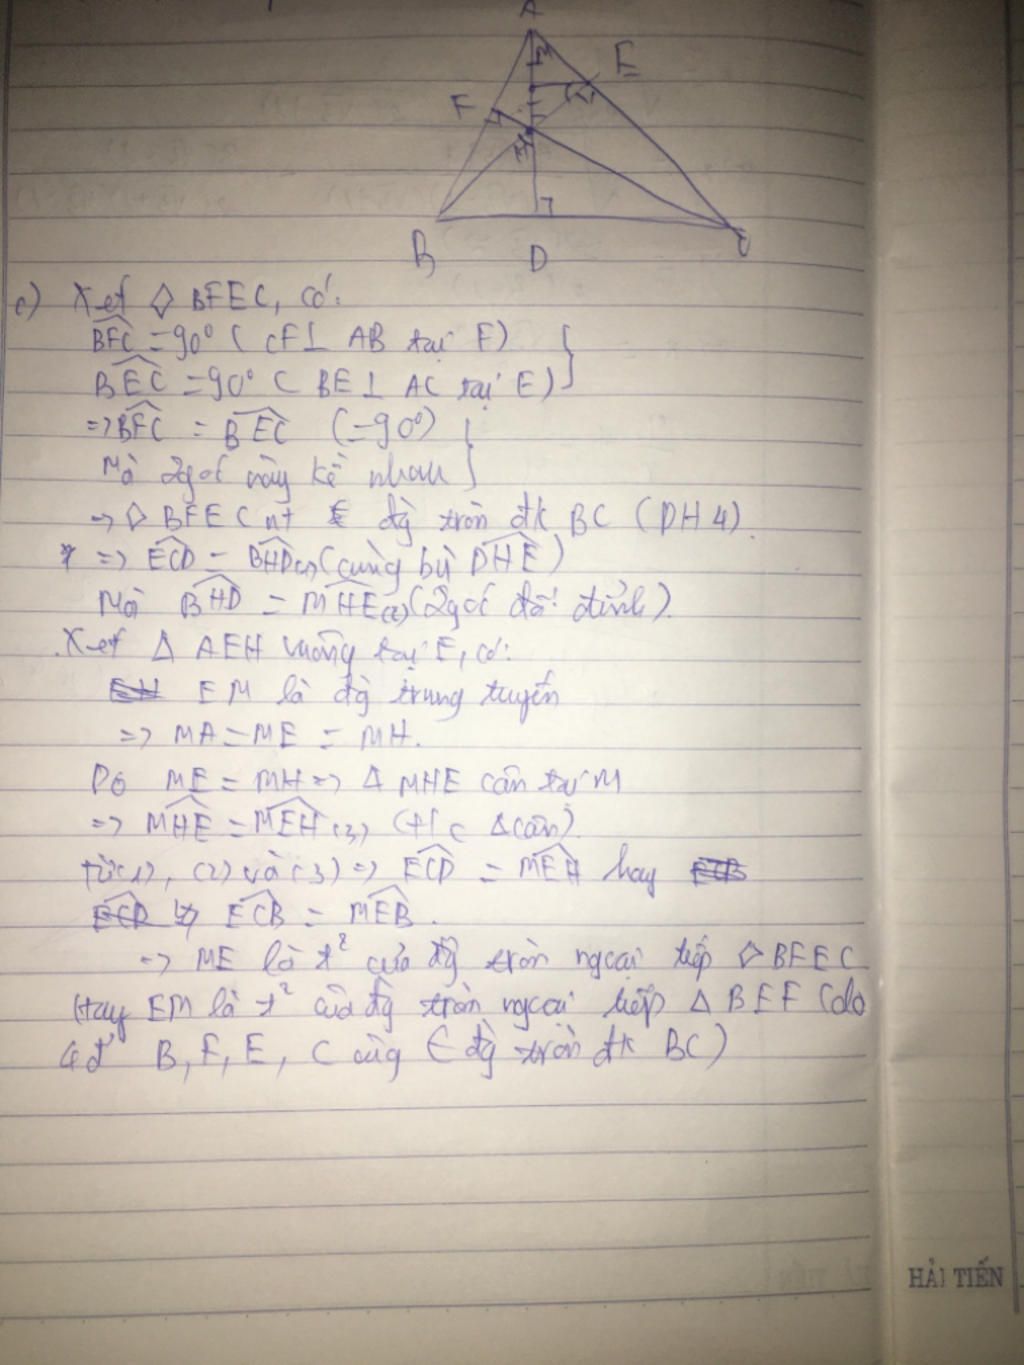 A
E
F
M
H
B
D
C
c) Xét ◇ BFEC, có:
BFC = 90° ( CF⊥ AB tại F)
BEC = 90° ( BE⊥ AC tại E)
=> BFC = BEC (=90°)
Mà 2 góc này kề nhau
-> ◇ BFEC nt đg tròn đk BC (DH4).
* => ECD = BHD(1) (cùng bù DHE)
Mà BHD = MHE(2) (2 góc đối đỉnh).
.Xét Δ AEH vuông tại E, có:
EM là đg trung tuyến
=> MA = ME = MH.
Do ME = MH => Δ MHE cân tại M
=> MHE = MEH (3) (t/c Δ cân).
Từ (1), (2) và (3) => ECD = MEH hay
ECB = MEB.
=> ME là t² của đg tròn ngoại tiếp ◇ BFEC
(Hay EM là t² của đg tròn ngoại tiếp Δ BEF (do
4đ' B, F, E, C cùng ∈ đg tròn đk BC)
HẢI TIẾN